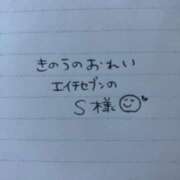 きのうのおれい
エイチセブンの
S様